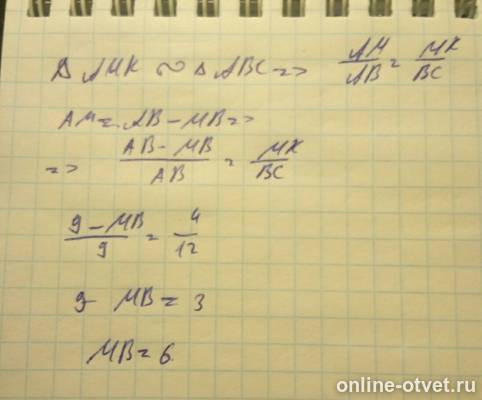 Δ AMK ∾ Δ ABC => AM/AB = MK/BC
AM = AB - MB =>
=> AB - MB/AB = MK/BC
9 - MB/9 = 4/12
9 - MB = 3
MB = 6
online-otvet.ru